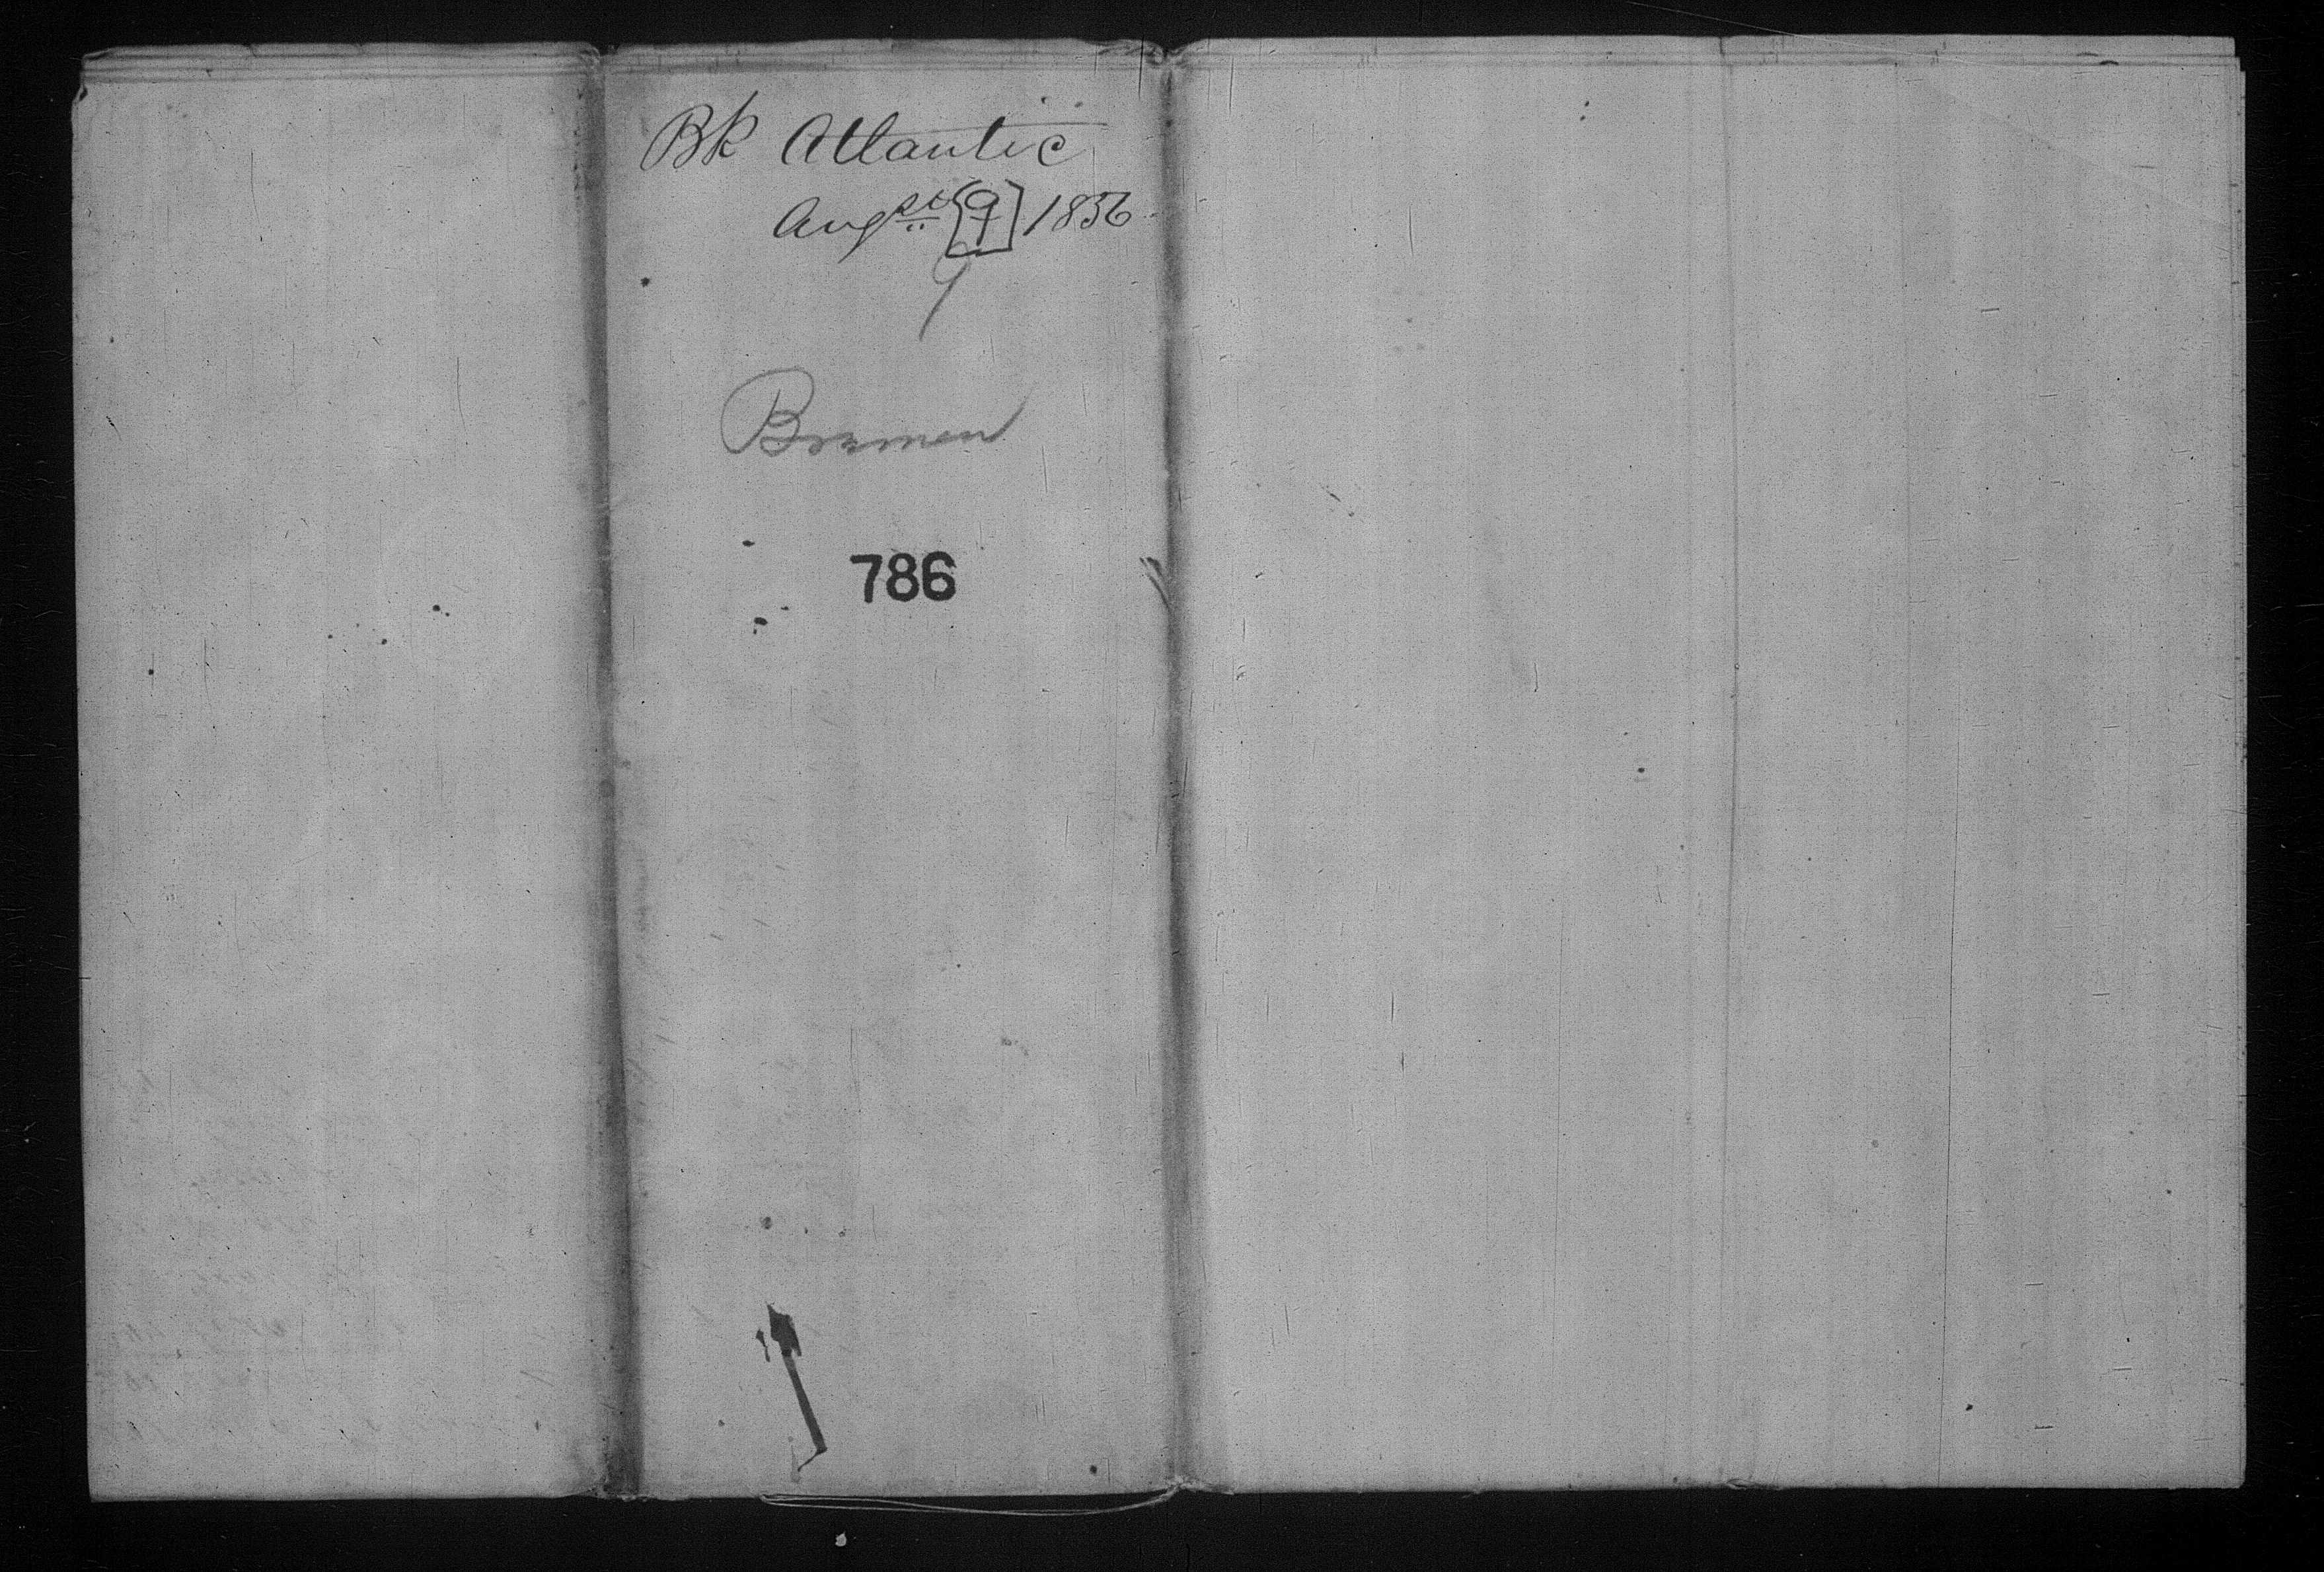 Bk Atlantic
Augst [9] 1856
9
Bremen
786